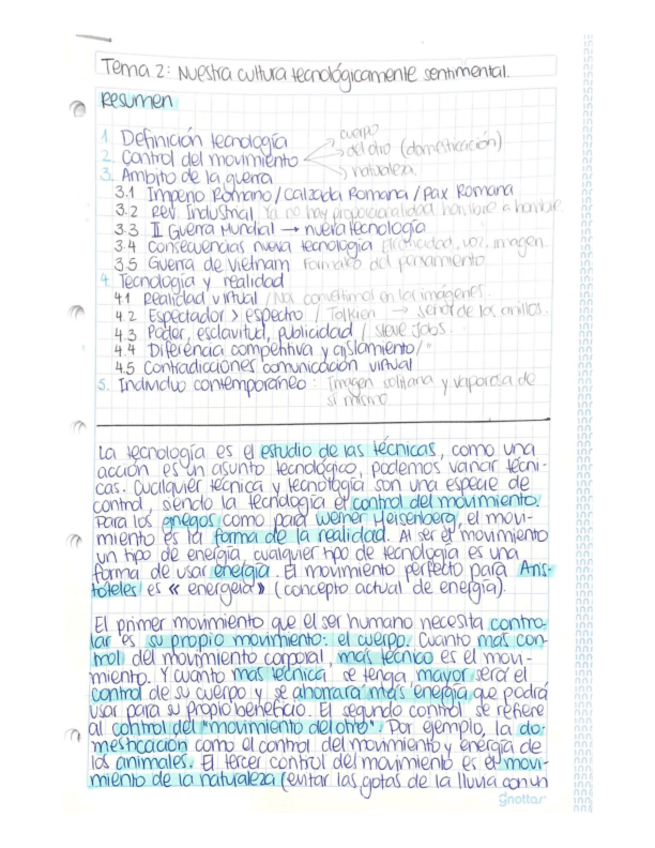 Tema 2: Nuestra cultura tecnológicamente sentimental.
Resumen
1. Definición tecnología
2. Control del movimiento → cuerpo
→ del otro (domesticación)
→ naturaleza.
3. Ámbito de la guerra
3.1 Imperio Romano / Calzada Romana / Pax Romana
3.2 Rev. Industrial Ya no hay proporcionalidad hombre a hombre.
3.3 II Guerra Mundial → nueva tecnología
3.4 Consecuencias nueva tecnología Electricidad, voz, imagen.
3.5 Guerra de Vietnam Formateo del pensamiento
4. Tecnología y realidad
4.1 Realidad virtual / Nos convertimos en las imágenes.
4.2 Espectador > espectro / Tolkien → señor de los anillos.
4.3 Poder, esclavitud, publicidad / Steve Jobs
4.4 Diferencia competitiva y aislamiento / "
4.5 Contradicciones comunicación virtual
5. Individuo contemporáneo: Imagen solitaria y vaporosa de
sí mismo
La tecnología es el estudio de las técnicas, como una
acción es un asunto tecnológico, podemos variar técni-
cas. Cualquier técnica y tecnología son una especie de
control, siendo la tecnología el control del movimiento.
Para los griegos como para Werner Heisenberg, el movi-
miento es la forma de la realidad. Al ser el movimiento
un tipo de energía, cualquier tipo de tecnología es una
forma de usar energía. El movimiento perfecto para Aris-
tóteles es « energeia » (concepto actual de energía).
El primer movimiento que el ser humano necesita contro-
lar es su propio movimiento: el cuerpo. Cuanto más con-
trol del movimiento corporal, más técnico es el movi-
miento. Y cuanto más técnica se tenga mayor será el
control de su cuerpo y se ahorrará más energía que podrá
usar para su propio beneficio. El segundo control se refiere
al control del "movimiento del otro". Por ejemplo, la do-
mesticación como el control del movimiento y energía de
los animales. El tercer control del movimiento es el movi-
miento de la naturaleza (evitar las gotas de la lluvia con un
gnottar